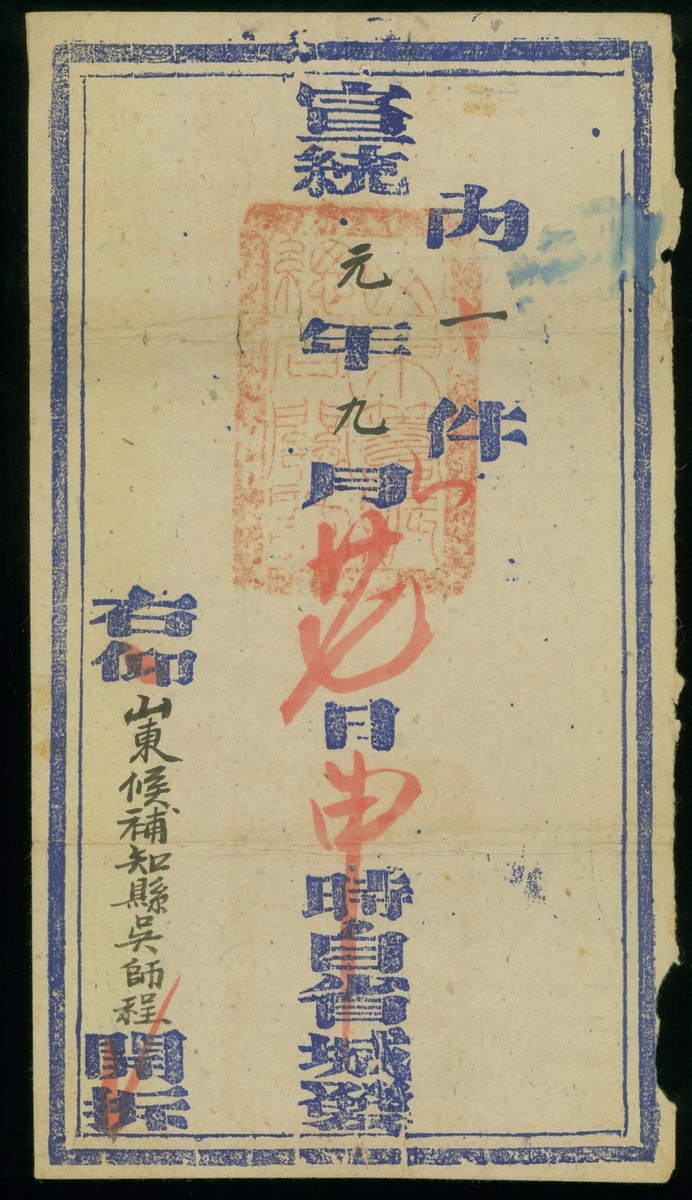 内一件
宣統元年九月廿日申時自省城發
右仰山東候補知縣吳師程開拆